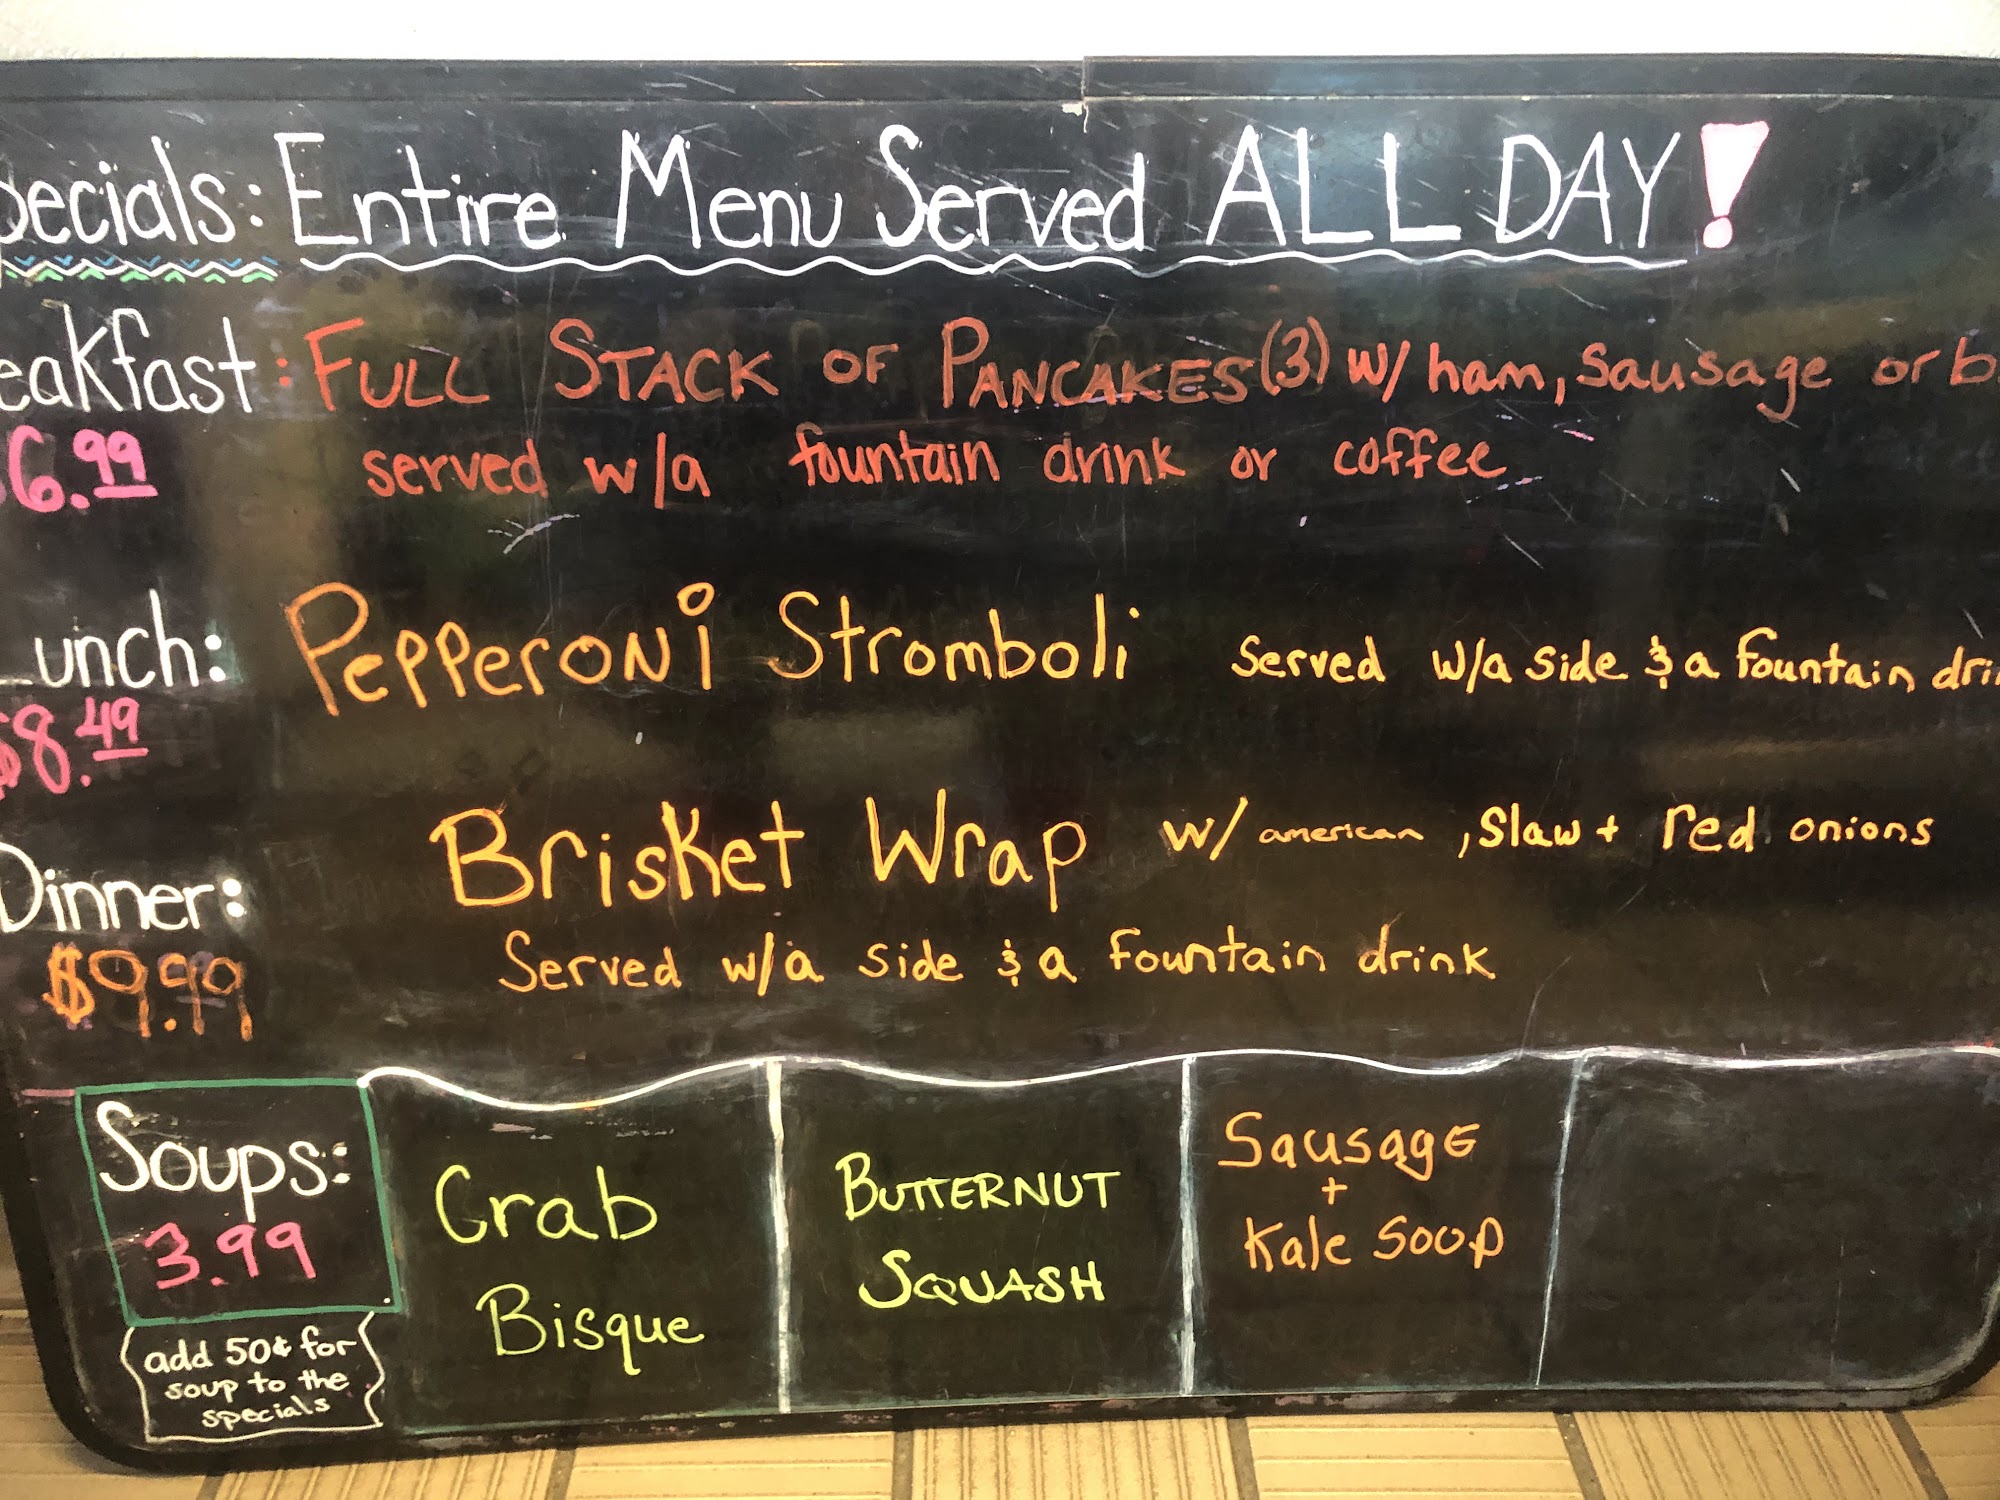 pecials: Entire Menu Served ALL DAY!
eakfast: FULL STACK OF PANCAKES (3) w/ ham, sausage or b
$6.99 served w/a fountain drink or coffee
Lunch: Pepperoni Stromboli Served w/a side & a fountain drin
$8.49
Brisket Wrap w/ american, Slaw + red onions
Dinner: Served w/a side & a fountain drink
$9.99
Soups:
3.99
add 50¢ for
soup to the
specials
Crab
Bisque
BUTTERNUT
SQUASH
Sausage
+
Kale Soup